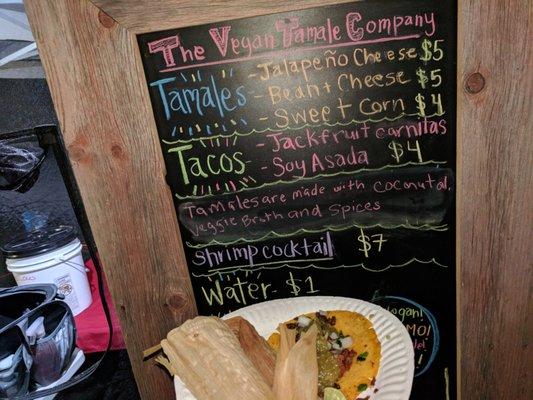 The Vegan Tamale Company
Tamales
- Jalapeño Cheese $5
- Bean + Cheese $5
- Sweet Corn $4
Tacos
- Jackfruit carnitas
- Soy Asada $4
Tamales are made with coconut oil,
veggie Broth and Spices
shrimp cocktail $7
Water $1